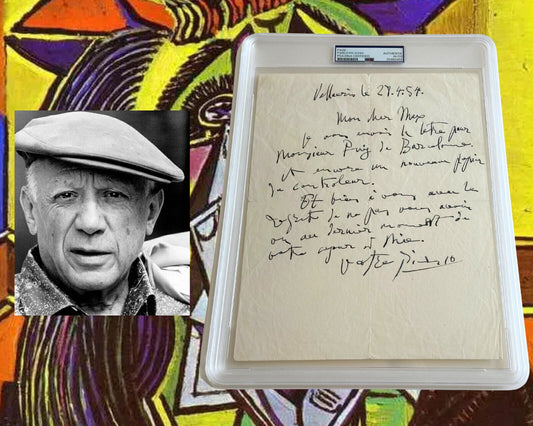 PABLO PICASSO
AUTHENTIC
Vallauris le 29.4.54.
Mon cher Max
je vous envois la lettre pour
Monsieur Puig de Barcelone
et encore un nouveau papier
de controleur.
Et bien i vous avec le
regret de ne pas vous avoir
vu au dernier moment de
votre sejour a Nice.
votre Picasso